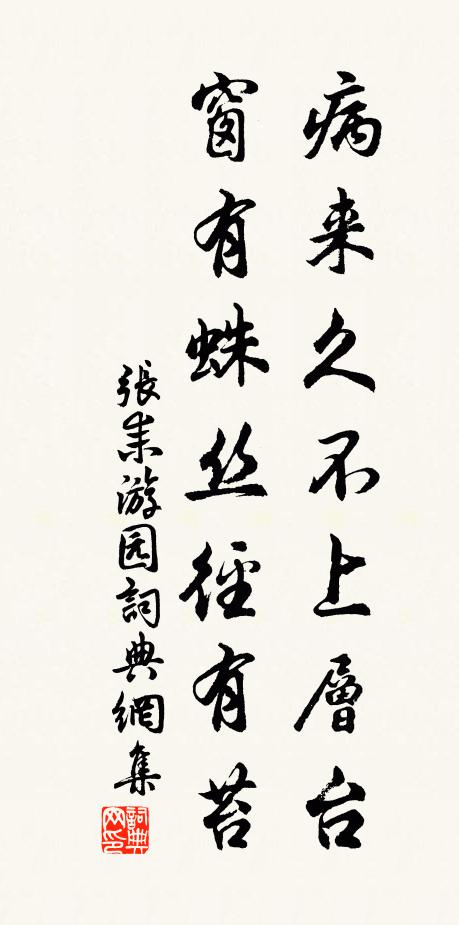 病来久不上層台
窗有蛛丝徑有苔
張耒游园詞典網集
詞典网印